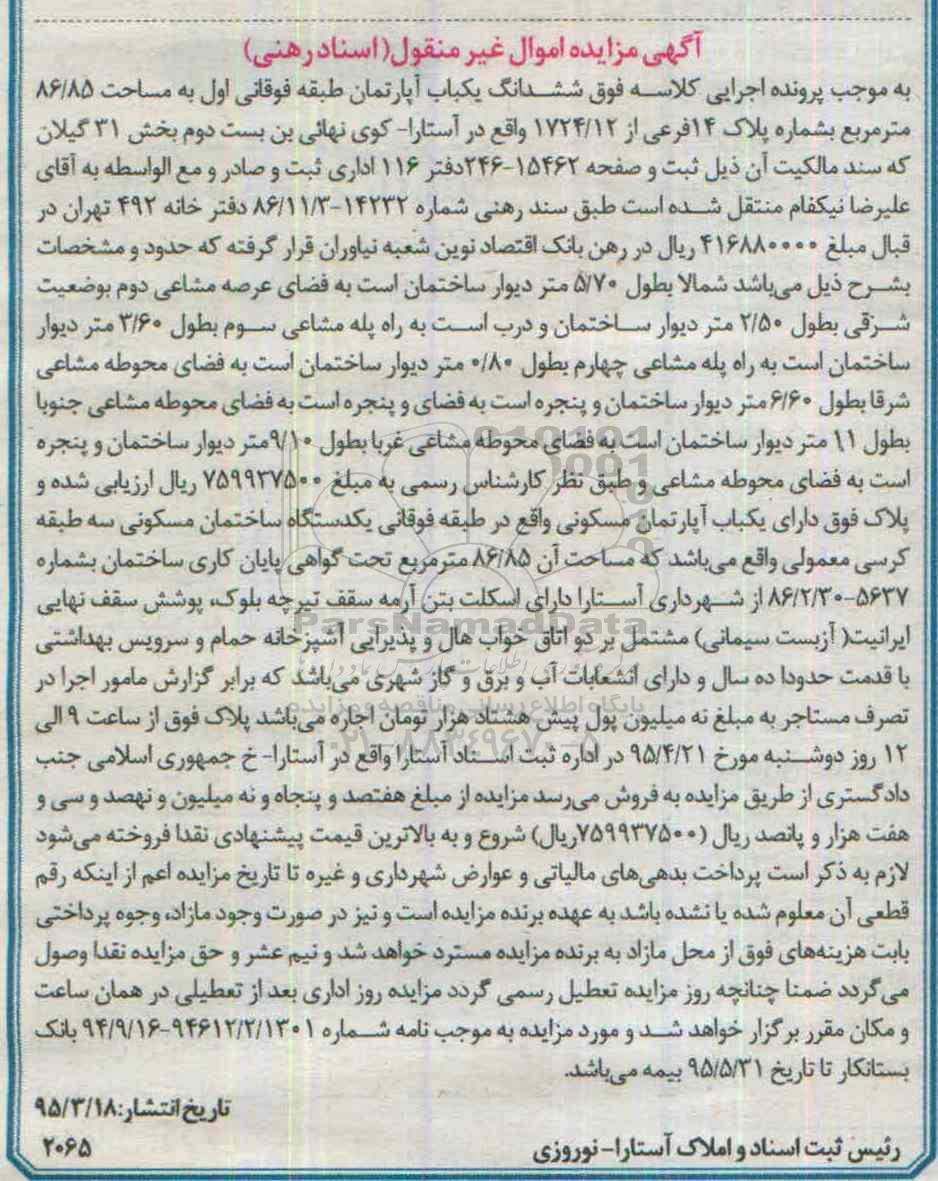 آگهی مزایده اموال غیر منقول(اسناد رهنی)
به موجب پرونده اجرایی کلاسه فوق ششدانگ یکباب آپارتمان طبقه فوقانی اول به مساحت ۸۶/۸۵
مترمربع بشماره پلاک ۱۴فرعی از ۱۷۲۴/۱۲ واقع در آستارا- کوی نهائی بن بست دوم بخش ۳۱ گیلان
که سند مالکیت آن ذیل ثبت و صفحه ۱۵۴۶۲-۲۴۶دفتر ۱۱۶ اداری ثبت و صادر و مع الواسطه به آقای
علیرضا نیکفام منتقل شده است طبق سند رهنی شماره ۱۴۲۳۲-۸۶/۱۱/۳ دفتر خانه ۴۹۲ تهران در
قبال مبلغ ۴۱۶۸۸۰۰۰۰ ریال در رهن بانک اقتصاد نوین شعبه نیاوران قرار گرفته که حدود و مشخصات
بشرح ذیل می‌باشد شمالا بطول ۵/۷۰ متر دیوار ساختمان است به فضای عرصه مشاعی دوم بوضعیت
شرقی بطول ۲/۵۰ متر دیوار ساختمان و درب است به راه پله مشاعی سوم بطول ۳/۶۰ متر دیوار
ساختمان است به راه پله مشاعی چهارم بطول ۰/۸۰ متر دیوار ساختمان است به فضای محوطه مشاعی
شرقا بطول ۶/۶۰ متر دیوار ساختمان و پنجره است به فضای و پنجره است به فضای محوطه مشاعی جنوبا
بطول ۱۱ متر دیوار ساختمان است به فضای محوطه مشاعی غربا بطول ۹/۱۰متر دیوار ساختمان و پنجره
است به فضای محوطه مشاعی و طبق نظر کارشناس رسمی به مبلغ ۷۵۹۹۳۷۵۰۰ ریال ارزیابی شده و
پلاک فوق دارای یکباب آپارتمان مسکونی واقع در طبقه فوقانی یکدستگاه ساختمان مسکونی سه طبقه
کرسی معمولی واقع می‌باشد که مساحت آن ۸۶/۸۵ مترمربع تحت گواهی پایان کاری ساختمان بشماره
۵۶۳۷-۸۶/۲/۳۰ از شهرداری آستارا دارای اسکلت بتن آرمه سقف تیرچه بلوک، پوشش سقف نهایی
ایرانیت( آزبست سیمانی) مشتمل بر دو اتاق خواب هال و پذیرایی آشپزخانه حمام و سرویس بهداشتی
با قدمت حدودا ده سال و دارای انشعابات آب و برق و گاز شهری می‌باشد که برابر گزارش مامور اجرا در
تصرف مستاجر به مبلغ نه میلیون پول پیش هشتاد هزار تومان اجاره می‌باشد پلاک فوق از ساعت ۹ الی
۱۲ روز دوشنبه مورخ ۹۵/۴/۲۱ در اداره ثبت اسناد آستارا واقع در آستارا- خ جمهوری اسلامی جنب
دادگستری از طریق مزایده به فروش می‌رسد مزایده از مبلغ هفتصد و پنجاه و نه میلیون و نهصد و سی و
هفت هزار و پانصد ریال (۷۵۹۹۳۷۵۰۰ریال) شروع و به بالاترین قیمت پیشنهادی نقدا فروخته می‌شود
لازم به ذکر است پرداخت بدهی‌های مالیاتی و عوارض شهرداری و غیره تا تاریخ مزایده اعم از اینکه رقم
قطعی آن معلوم شده یا نشده باشد به عهده برنده مزایده است و نیز در صورت وجود مازاد، وجوه پرداختی
بابت هزینه‌های فوق از محل مازاد به برنده مزایده مسترد خواهد شد و نیم عشر و حق مزایده نقدا وصول
می‌گردد ضمنا چنانچه روز مزایده تعطیل رسمی گردد مزایده روز اداری بعد از تعطیلی در همان ساعت
و مکان مقرر برگزار خواهد شد و مورد مزایده به موجب نامه شماره ۹۴۶۱۲/۲/۱۳۰۱-۹۴/۹/۱۶ بانک
بستانکار تا تاریخ ۹۵/۵/۳۱ بیمه می‌باشد.
تاریخ انتشار:۹۵/۳/۱۸
رئیس ثبت اسناد و املاک آستارا- نوروزی
۲۰۶۵
ParsNamadData
پایگاه اطلاع رسانی مناقصه و مزایده